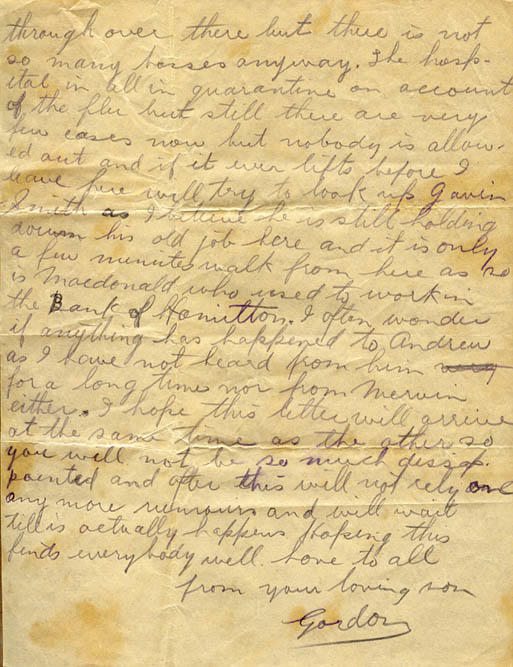 through over there but there is not
so many bosses anyway. The hosp-
ital in all in quarantine on account
of the flu but still there are very
few cases now but nobody is allow-
ed out and if it ever lifts before I
leave here will try to look up Gavin
Smith as I believe he is still holding
down his old job here and it is only
a few minutes walk from here as so
is Macdonald who used to work in
the Bank of Hamilton. I often wonder
if anything has happened to Andrew
as I have not heard from him very
for a long time nor from Mervin
either. I hope this letter will arrive
at the same time as the other so
you will not be so much disap-
pointed and after this will not rely on
any more rumours and will wait
till is actually happens. Hoping this
finds everybody well. Love to all
from your loving son
Gordon